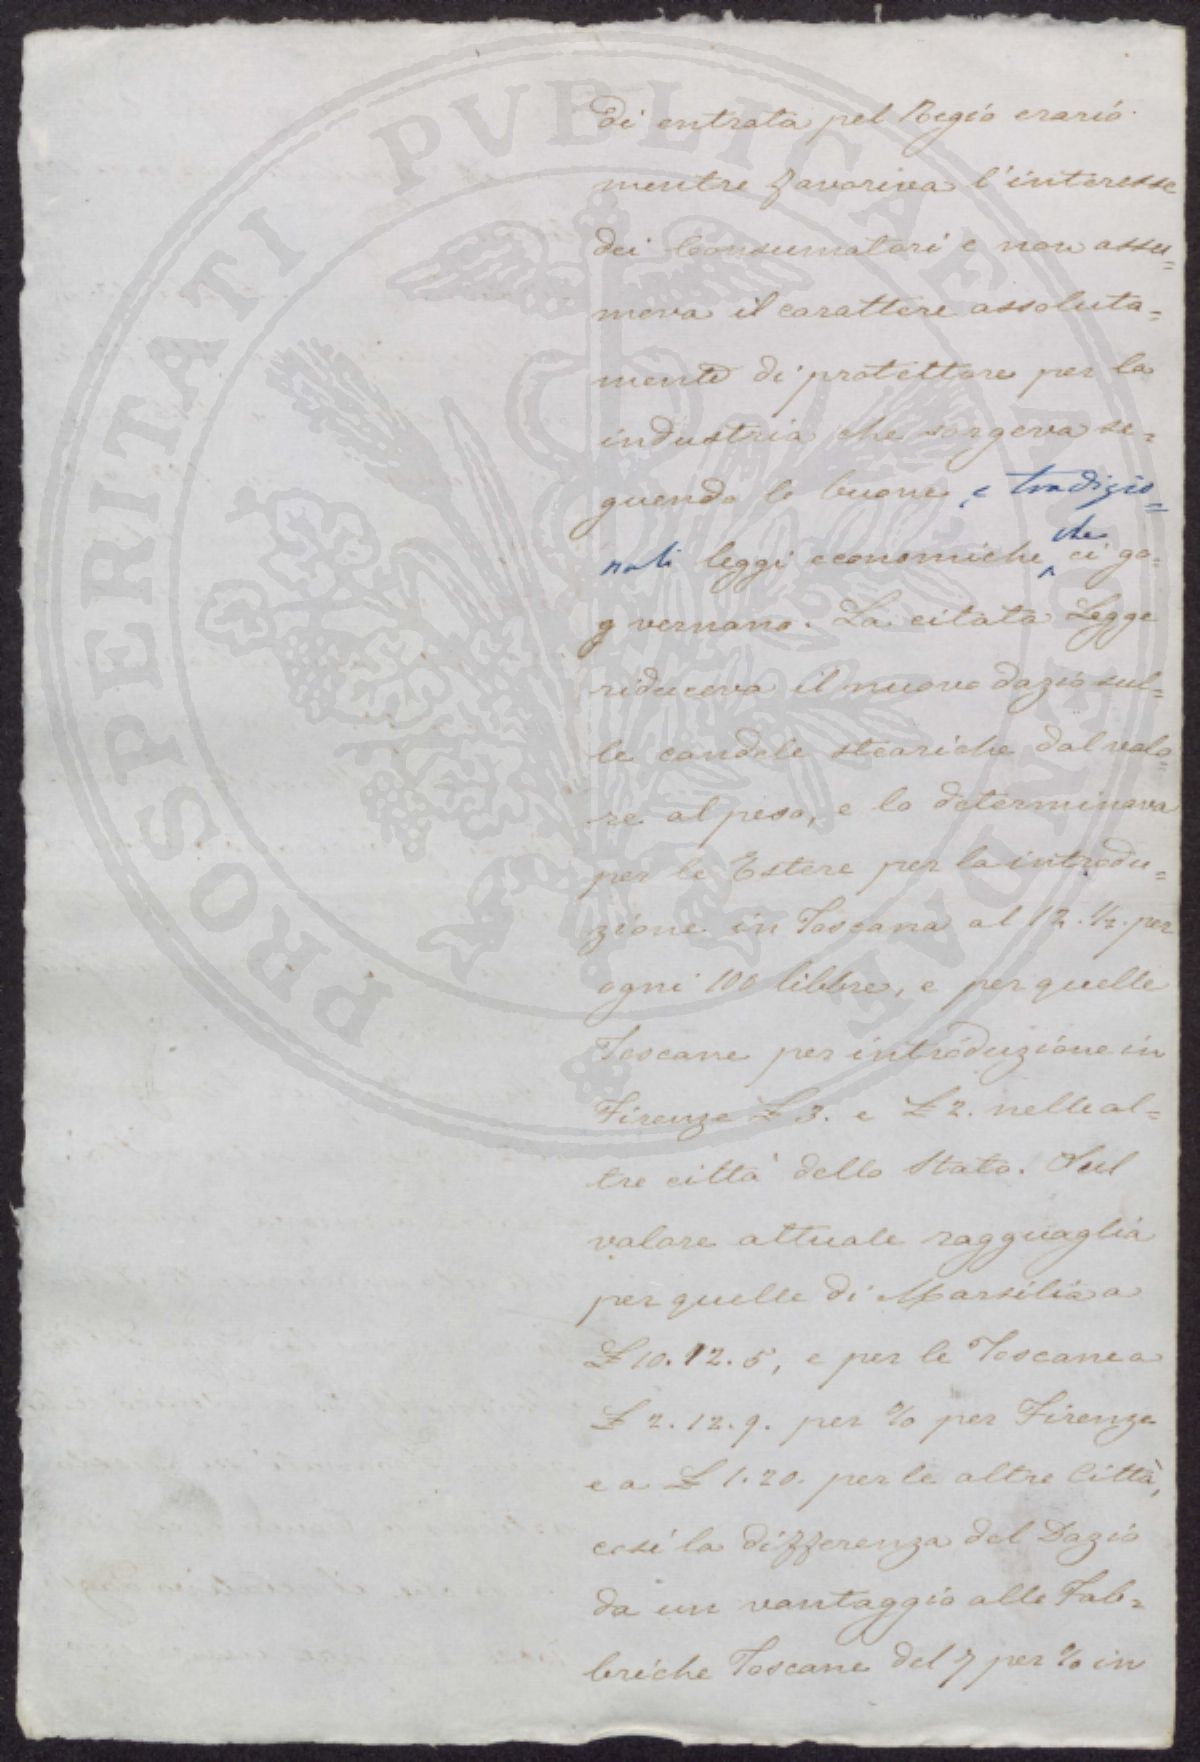 di entrata pel Regio erario
mentre favoriva l'interesse
dei Consumatori e non assu=
meva il carattere assoluta=
mente di protettore per la
industria che sorgeva se=
guendo le buone e tradizio=
nali leggi economiche che ci go=
g vernano. La citata Legge
riduceva il nuovo dazio sul=
le candele steariche dal valo=
re al peso, e lo determinava
per le Estere per la introdu=
zione in Toscana al 12. 1/2. per
ogni 100 libbre, e per quelle
Toscane per introduzione in
Firenze £ 3. e £ 2. nelle al=
tre città dello Stato. Sul
valore attuale ragguaglia
per quelle di Marsilia a
£ 10. 12. 5, e per le Toscane a
£ 2. 12. 9. per % per Firenze
e a £ 1. 20. per le altre Città,
così la differenza del Dazio
da un vantaggio alle Fab=
briche Toscane del 7 per % in
PROSPERITATI PVBLICAE AVGENDAE